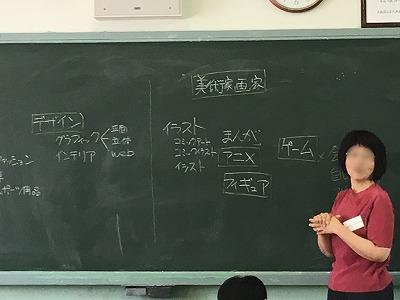 デザイン
グラフィック
平面
立体
web
インテリア
ファッション
スポーツ用品
美術家画家
イラスト
コミックアート
コミックイラスト
イラスト
まんが
アニメ
フィギュア
ゲーム